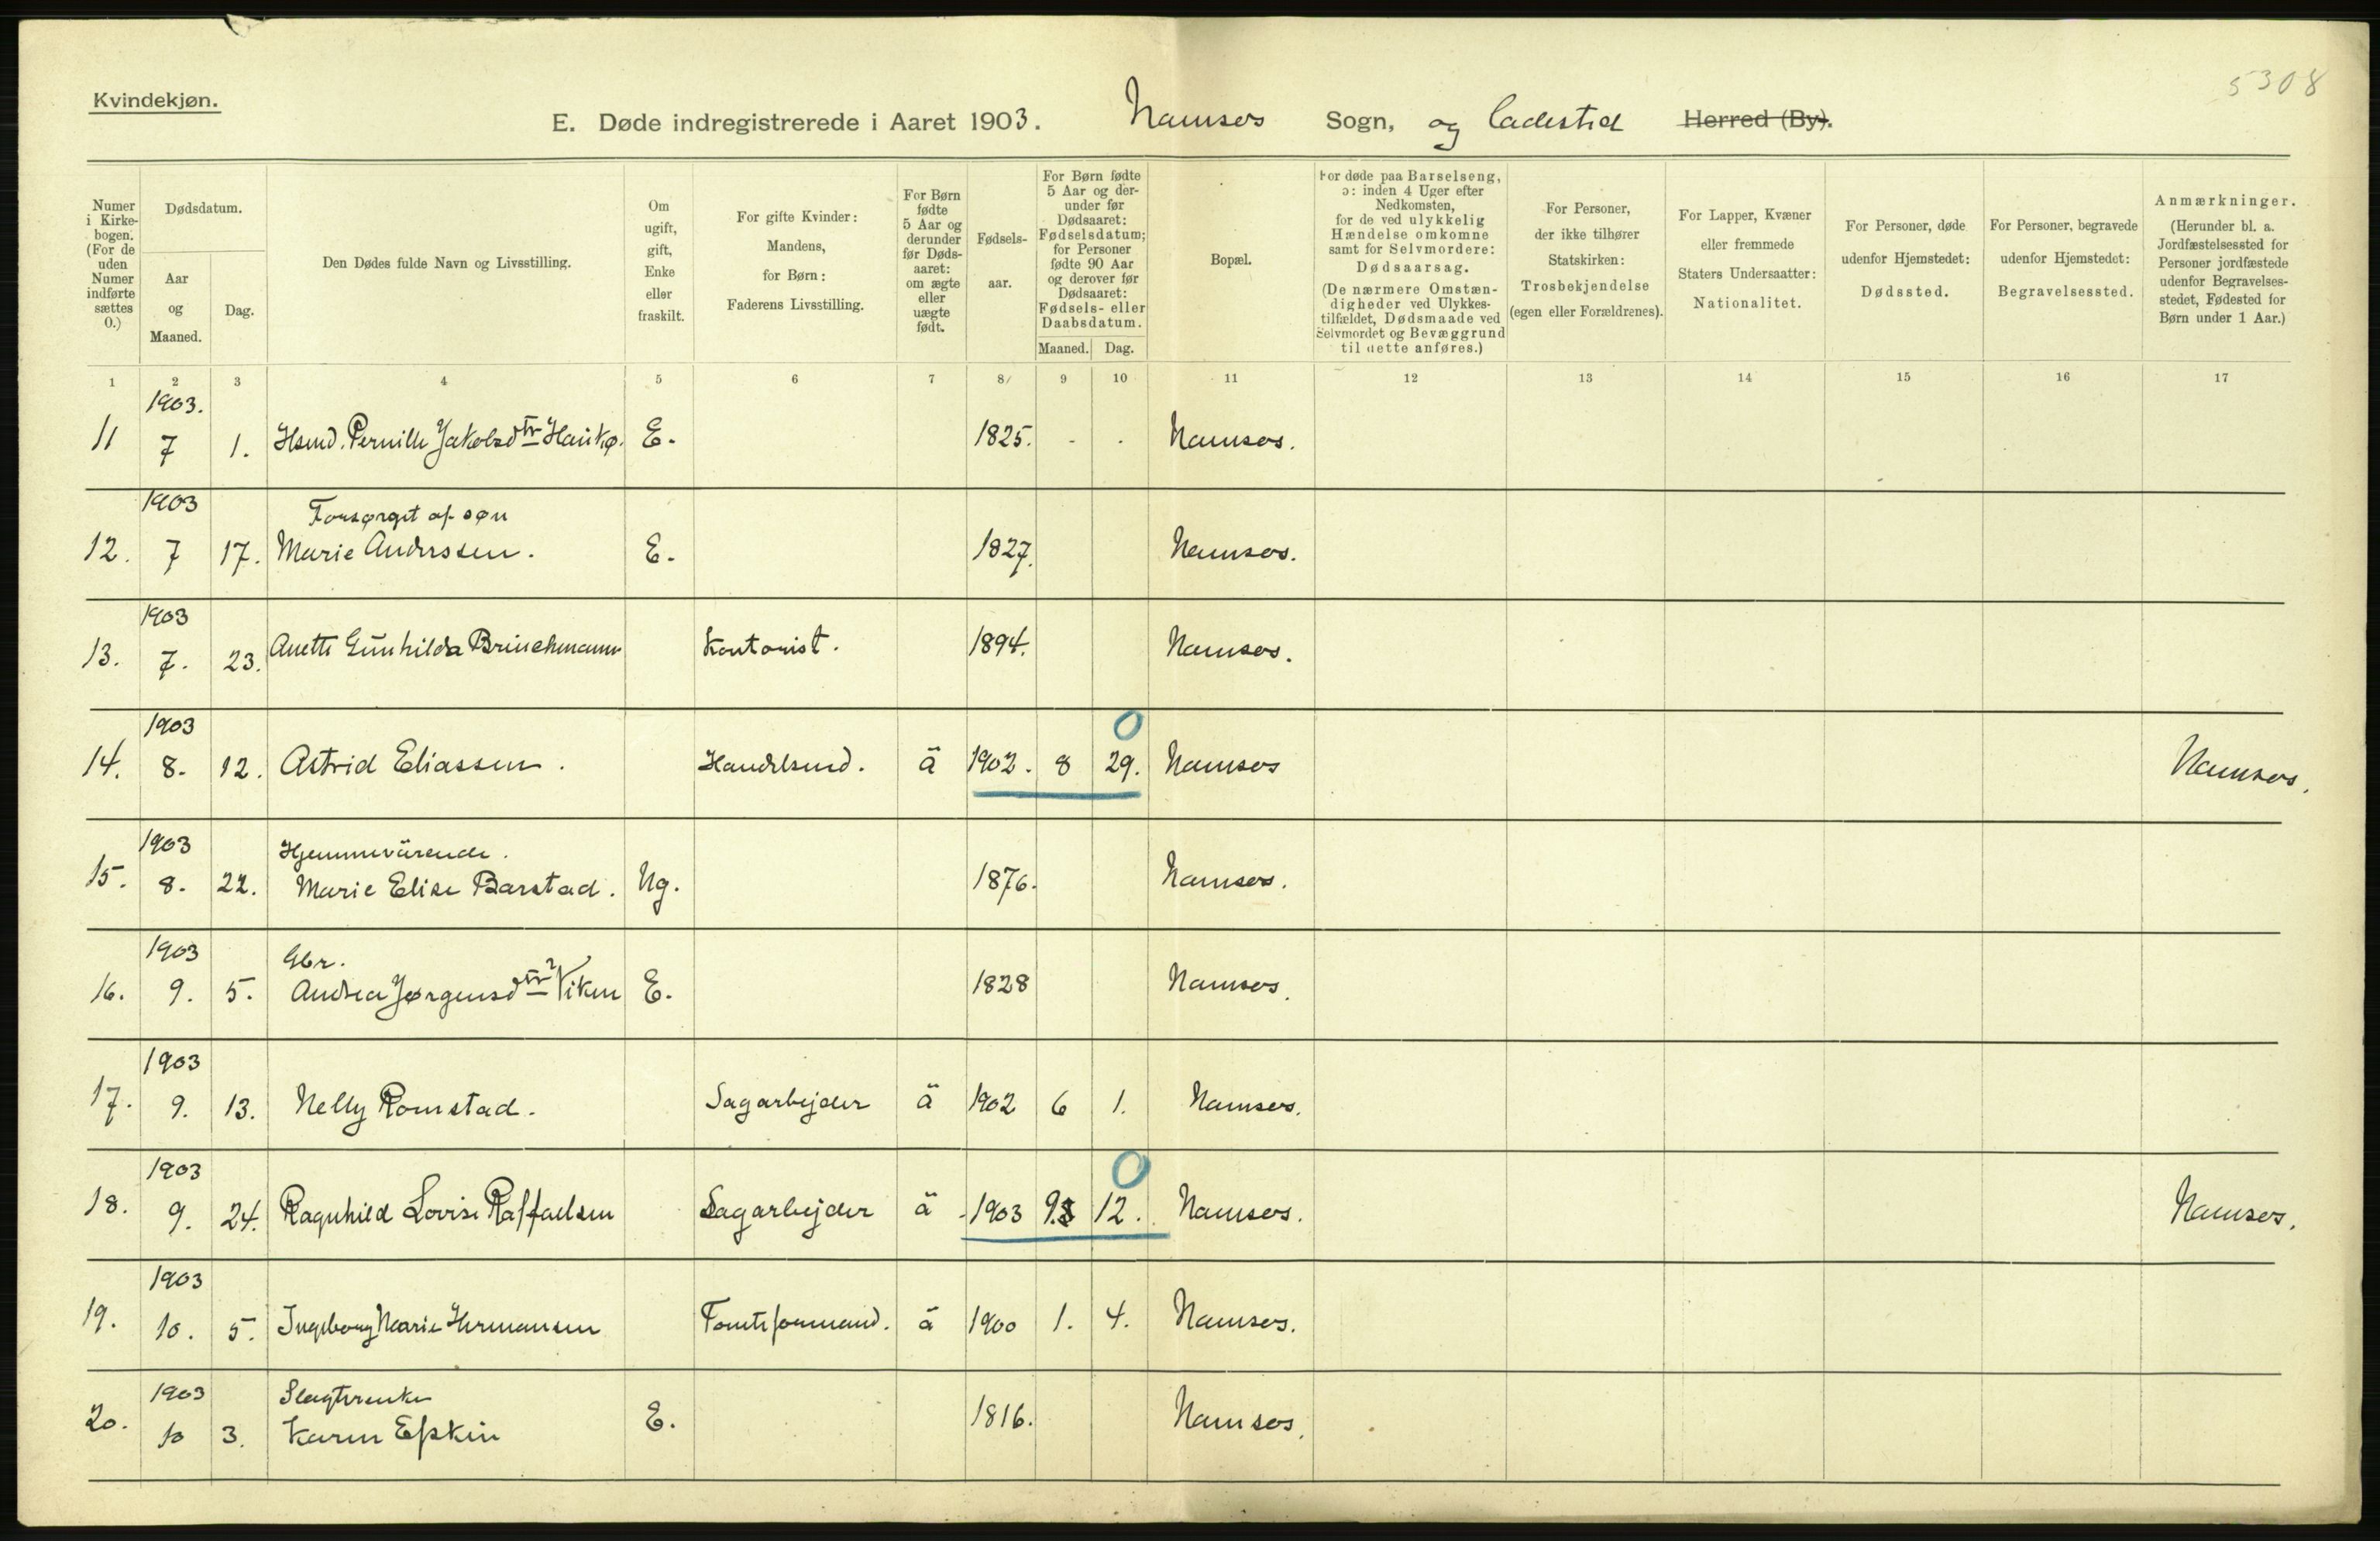 5308
Kvindekjøn.
E. Døde indregistrerede i Aaret 1903. Namsos Sogn, og Ladested Herred (By).
Numer i Kirke-bogen. (For de uden Numer indførte sættes 0.)
Dødsdatum.
Aar og Maaned.
Dag.
Den Dødes fulde Navn og Livsstilling.
Om ugift, gift, Enke eller fraskilt.
For gifte Kvinder: Mandens, for Børn: Faderens Livsstilling.
For Børn fødte 5 Aar og derunder før Døds-aaret: om ægte eller uægte født.
Fødsels-aar.
For Børn fødte 5 Aar og der-under før Dødsaaret: Fødselsdatum; for Personer fødte 90 Aar og derover før Dødsaaret: Fødsels- eller Daabsdatum.
Maaned. Dag.
Bopæl.
For døde paa Barselseng, ɔ: inden 4 Uger efter Nedkomsten, for de ved ulykkelig Hændelse omkomne samt for Selvmordere: Dødsaarsag. (De nærmere Omstæn-digheder ved Ulykkes-tilfældet, Dødsmaade ved Selvmordet og Bevæggrund til dette anføres.)
For Personer, der ikke tilhører Statskirken: Trosbekjendelse (egen eller Forældrenes).
For Lapper, Kvæner eller fremmede Staters Undersaatter: Nationalitet.
For Personer, døde udenfor Hjemstedet: Dødssted.
For Personer, begravede udenfor Hjemstedet: Begravelsessted.
Anmærkninger. (Herunder bl. a. Jordfæstelsessted for Personer jordfæstede udenfor Begravelses-stedet, Fødested for Børn under 1 Aar.)
1 2 3 4 5 6 7 8 9 10 11 12 13 14 15 16 17
1903.
11 7 1. Hsmd. Pernille Jakobsdtr Haukø. E. 1825. - . Namsos.
1903 Forsørget af søn
12. 7 17. Marie Anderssen. E. 1827. Namsos.
1903
13. 7. 23. Anette Gunhilda Brinchmann Kontorist. 1894. Namsos.
1903 0
14. 8. 12. Astrid Eliassen. Handelsmd. ä 1902. 8 29. Namsos Namsos.
1903 Hjemmeværende.
15. 8. 22. Marie Elise Barstad. Ug. 1876. Namsos.
1903 Gbr.
16. 9. 5. Andrea Jørgensdtr Viken E. 1828 Namsos.
1903
17. 9. 13. Nelly Romstad. Sagarbejder ä 1902 6 1. Namsos.
1903 0
18. 9. 24. Ragnhild Lovise Raffaelsen Sagarbejder ä 1903 9. 12. Namsos. Namsos.
1903
19. 10. 5. Ingeborg Marie Hermansen Tomteformand. ä 1900 1. 4. Namsos.
1903 Slagterenke
20. 10 3. Karen Eskin E. 1816. Namsos.